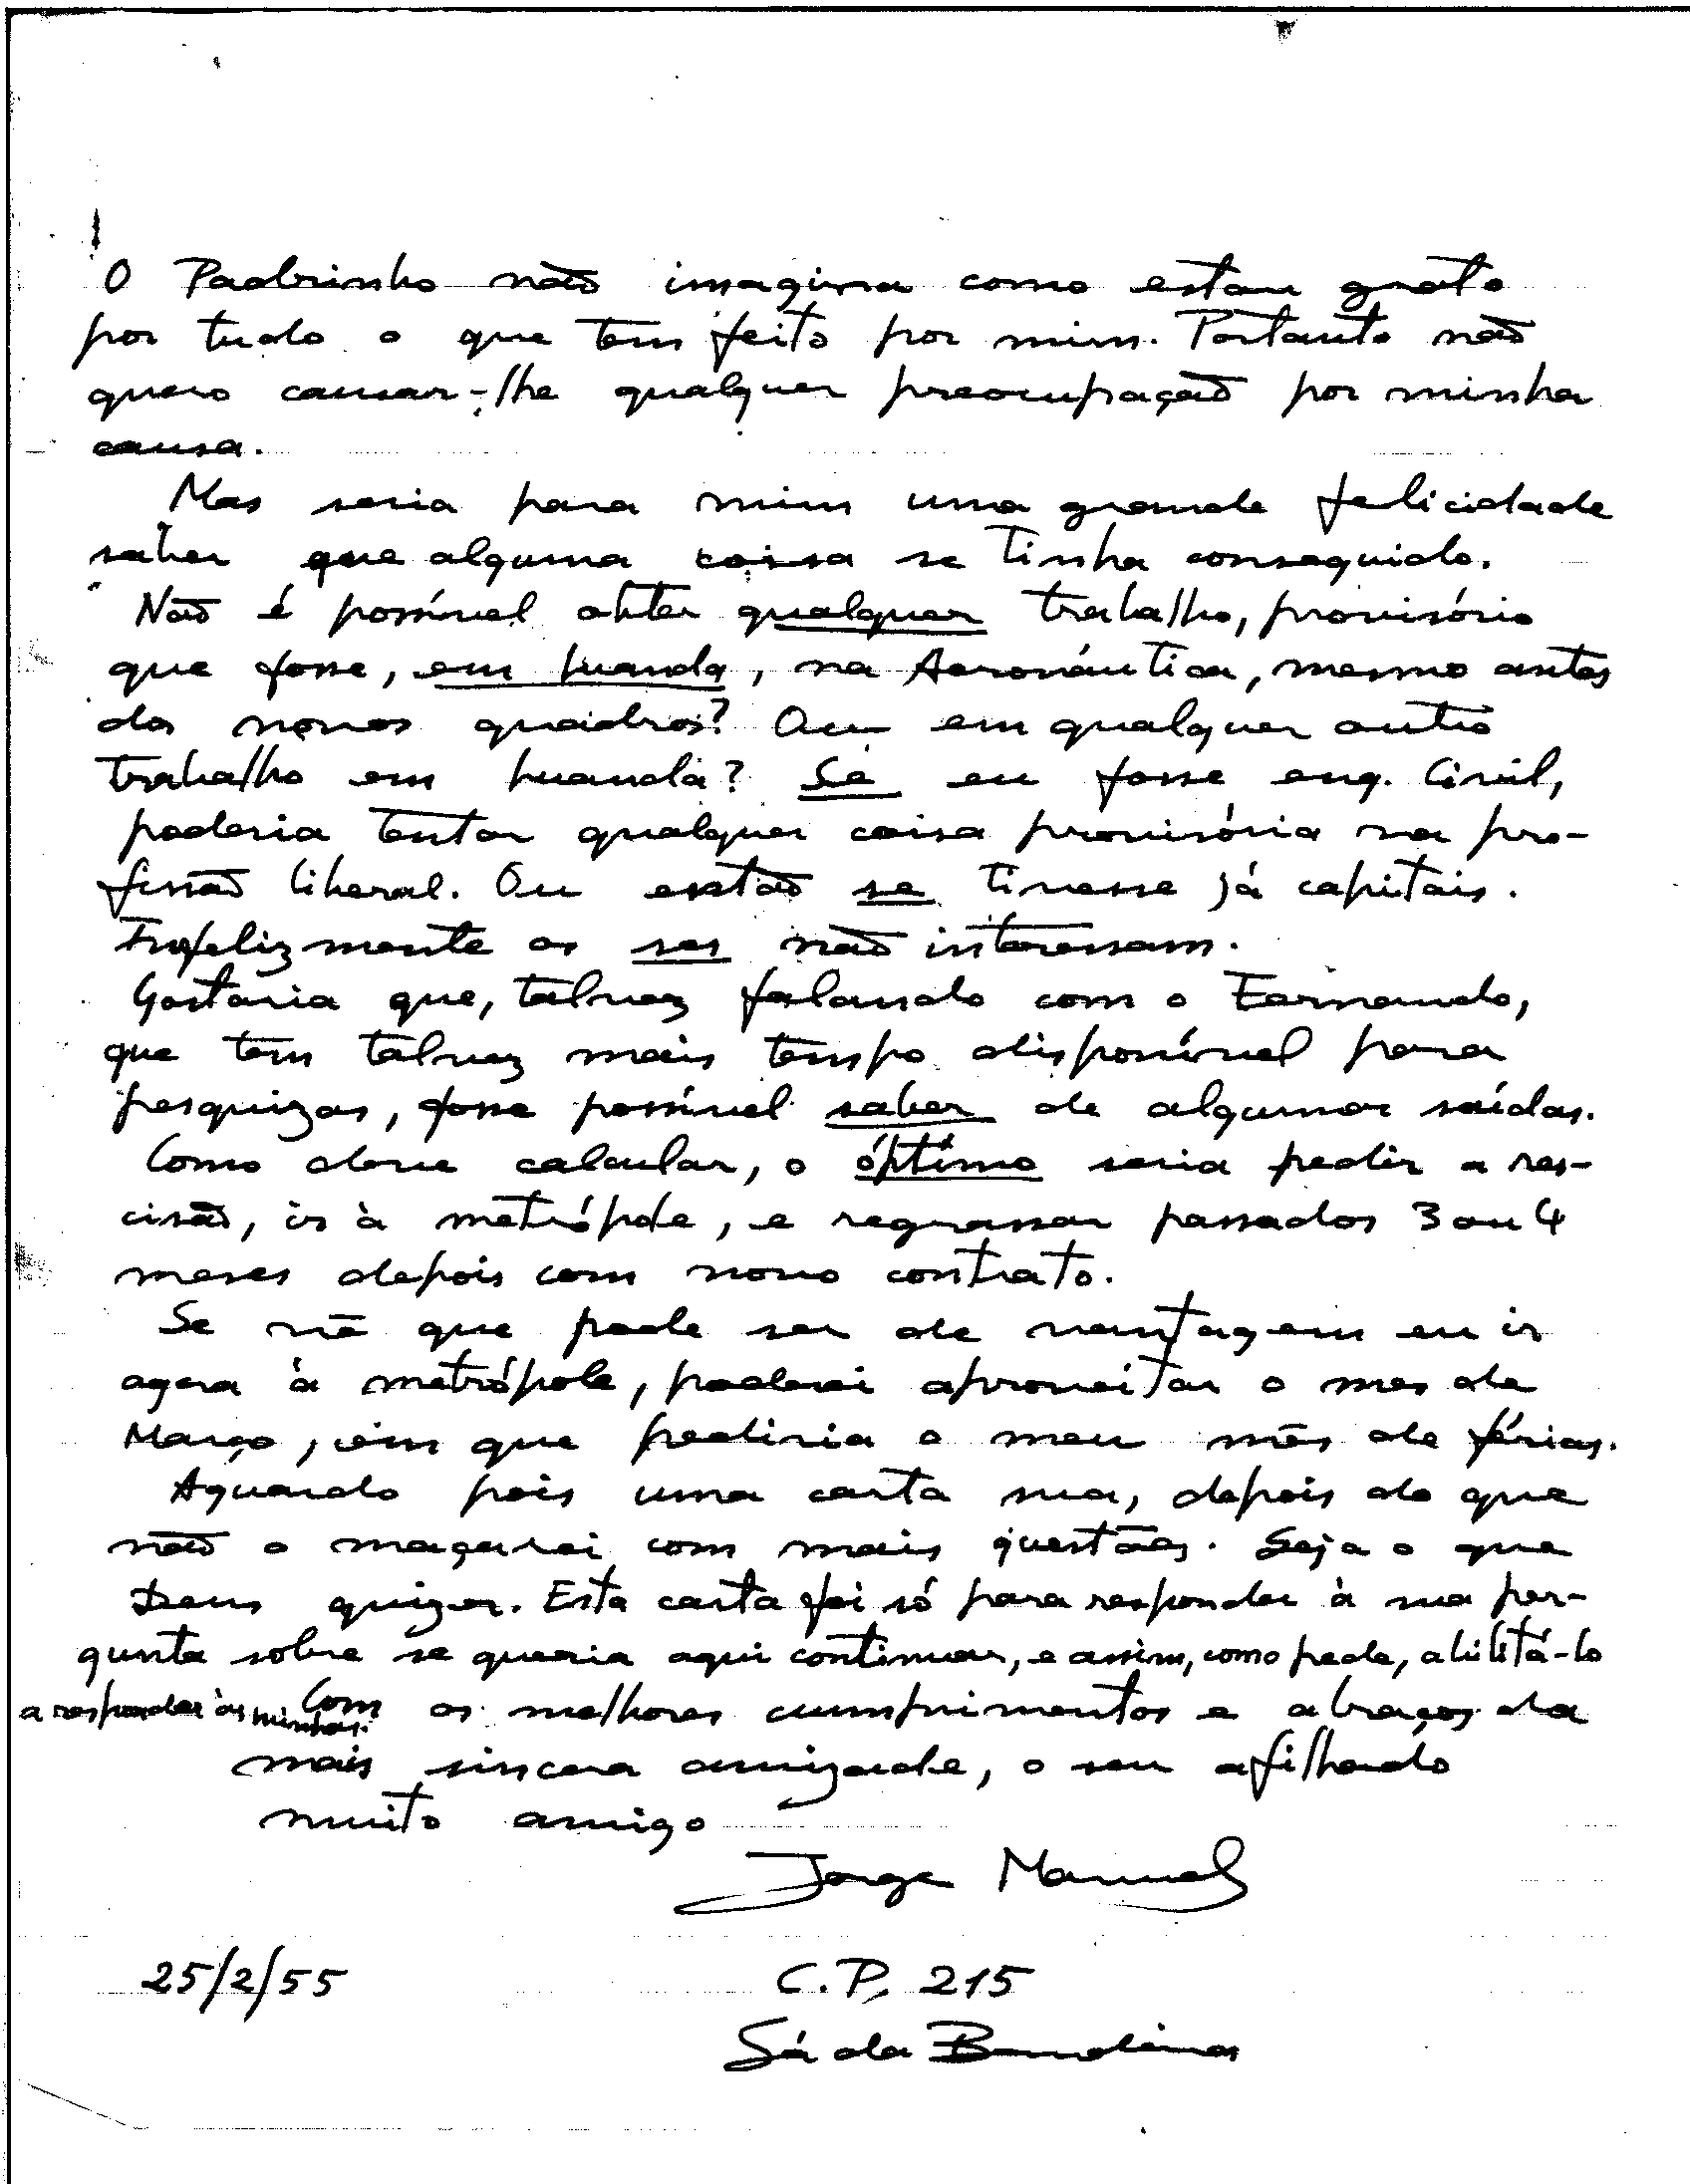 O Padrinho não imagina como estou grato
por tudo o que tem feito por mim. Portanto não
quero causar-lhe qualquer preocupação por minha
causa.
Mas seria para mim uma grande felicidade
saber que alguma coisa se tinha conseguido.
Não é possível obter qualquer trabalho, provisório
que fosse, em Luanda, na Aeronáutica, mesmo antes
dos novos quadros? Ou em qualquer outro
trabalho em Luanda? Se eu fosse eng. Civil,
poderia tentar qualquer coisa provisória na pro-
fissão liberal. Ou então se tivesse já capitais.
Infelizmente os ses não interessam.
Gostaria que, talvez falando com o Fernando,
que tem talvez mais tempo disponível para
pesquizas, fosse possível saber de algumas saídas.
Como deve calcular, o óptimo seria pedir a res-
cisão, ir à metrópole, e regressar passados 3 ou 4
meses depois com novo contrato.
Se vê que pode ser de vantagem eu ir
agora à metrópole, poderei aproveitar o mes de
Março, em que pediria o meu mês de férias.
Aguardo pois uma carta sua, depois do que
não o maçarei com mais questões. Seja o que
Deus quizer. Esta carta foi só para responder à sua per-
gunta sobre se queria aqui continuar, e assim, como pede, abilitá-lo
a responder às minhas. Com os melhores cumprimentos e abraços da
mais sincera amizade, o seu afilhado
muito amigo
Jorge Manuel
25/2/55 C.P. 215
Sá da Bandeira